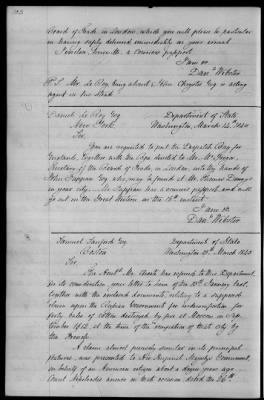 Board of Trade in London, which you will please to
in having safely delivered immediately on your arrival
I enclose, for Mr. C. a courier's passport.
I am &c.
Danl. Webster
P.S. Mr. Le Roy being absent Mr. John Chrystie Esq. is acting
agent in his stead.
Daniel Le Roy Esq.
New York.
Department of State
Washington, March 14, 1843
Sir
You are requested to put the Despatch Bag for
England, together with the Box directed to Mr. Mc Gregor,
Secretary of the Board of Trade in London, into the hands of
John Tappan Esq. who may be found at Mr.
in your city. Mr. Tappan has a courier's passport and will
go out in the Great Western on the 16th instant.
I am &c.
Danl. Webster
Samuel Sanford Esq.
Boston
Department of State
Washington 23d. March 1843
Sir
The Honble. Mr. Choate has referred to this Department,
for its consideration, your letter to him of the 10th January last,
together with the enclosed documents, relating to a supposed
claim upon the Russian Government for indemnification for
forty bales of cotton destroyed by fire at Moscow in Sep-
tember 1812, at the time of the occupation of that city by
the French.
A claim almost precisely similar in its principal
features, was presented to His Imperial Majesty's Government,
in behalf of an American citizen about a dozen years ago.
Count Nesselrode's answer in that occasion dated the 26th